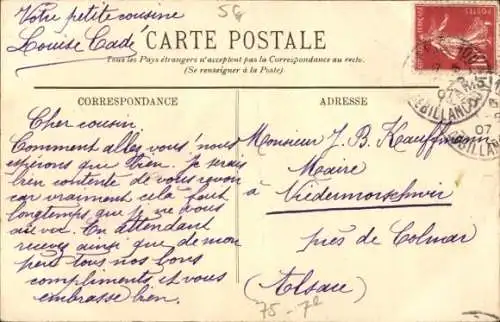 Votre petite cousine
Louise Cadé
56
CARTE POSTALE
Tous les Pays étrangers n'acceptent pas la Correspondance au recto.
(Se renseigner à la Poste).
CORRESPONDANCE
Cher cousin
Comment allez vous? nous
espérons que bien. Je serais
bien contente de vous revoir
car vraiment cela fait
longtemps que je ne vous
ai vu. En attendant
recevez ainsi que de mon
petit tous nos bons
compliments et vous
embrasse bien.
ADRESSE
Monsieur J. B. Kauffmann
Maire
à Niedermorschwir
près de Colmar
(Alsace)
75-72
POSTES
BILLANCOURT
07
BILLANCOURT
07